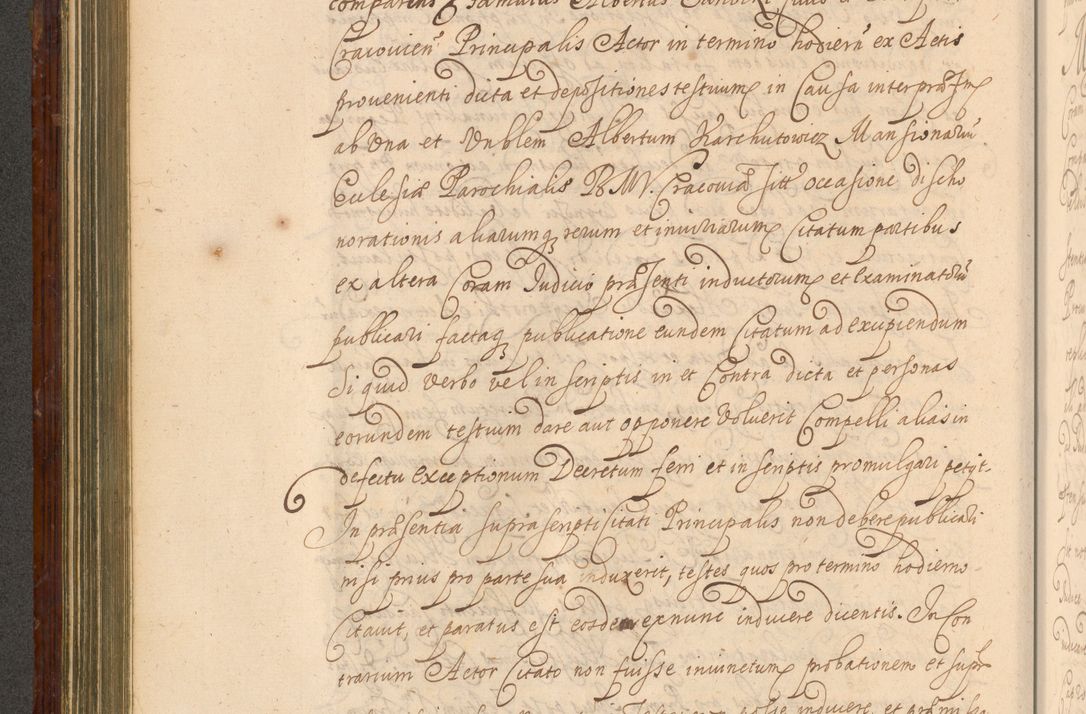 comparens Famatus Albertus
Cracovien Principalis Actor in termino hodiern ex Actis
provenienti dicta et depositiones testium in Causa inter præsm
ab Una et Vnblem Albertum Karchutowicz Mansionariu
Eclesiæ Parochialis B.M.V. Cracoviæ sitt occasione discho
norationis aliarumq rerum et iniuriarum Citatum partibus
ex altera Coram Judicio præsenti inductorum et Examinatoru
publicari factaq publicatione eundem Citatum ad excipiendum
Si quid verbo vel in scriptis in et Contra dicta et personas
eorundem testium dare aut opponere voluerit Compelli alias in
defectu exceptionum Decretum ferri et in scriptis promulgari petyt.
In præsentia suprascripti Citati Principalis non debere publicari
nisi prius pro parte sua induxerit, testes quos pro termino hodierno
Citavit, et paratus est eosdem exnunc inducere dicentis. In Con
trarium Actor Citato non fuisse iniunctum probationem et supr
posse inducere, et præmissa